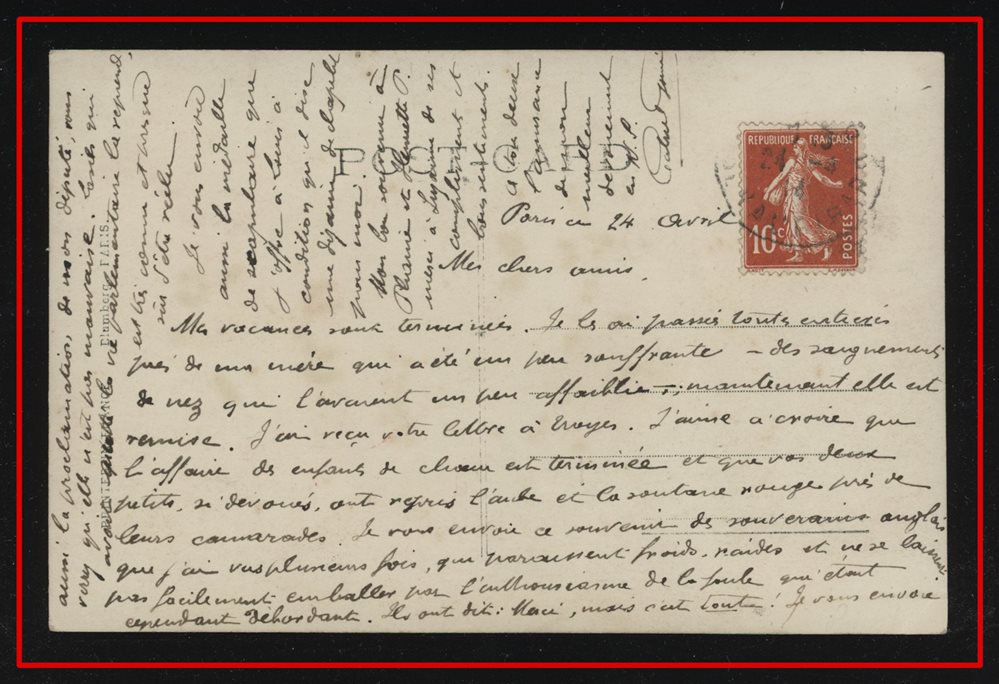 Paris ce 24 Avril
Mes chers amis,
Mes vacances sont terminées. Je les ai passé toutes entières
près de ma mère qui a été un peu souffrante - des saignements
de nez qui l'avaient un peu affaiblie -; maintenant elle est
remise. J'ai reçu votre lettre à Troyes. J'aime à croire que
l'affaire des enfants de chœur est terminée et que vos deux
petits, si dévoués, ont repris l'aube et la soutane rouge près de
leurs camarades. Je vous envoie ce souvenir de souverains anglais
que j'ai vus plusieurs fois, qui paraissent froids, raides et ne se laissent
pas facilement emballer par l'enthousiasme de la foule qui était
cependant débordante. Ils ont dit: Merci, mais c'est toute! Je vous envoie
aussi la proclamation de mon député, vous
verrez qu'elle n'est pas mauvaise. Tandis qui
la vie parlementaire la reprend,
est très connu et
sur votre
Je vous envoie
aussi la médaille
de scapulaire que
j'offre à Louis à
condition qu'il dise
une dizaine de chapelet
pour moi.
Mon bon souvenir à
et
merci à de ses
compliments et
bons sentiments.
à tous deux
l'assurance
de mon
meilleur
dévouement
en N. S.
PHOTO
Plumberge PARIS
REPUBLIQUE FRANÇAISE
10c
POSTES
PARIS